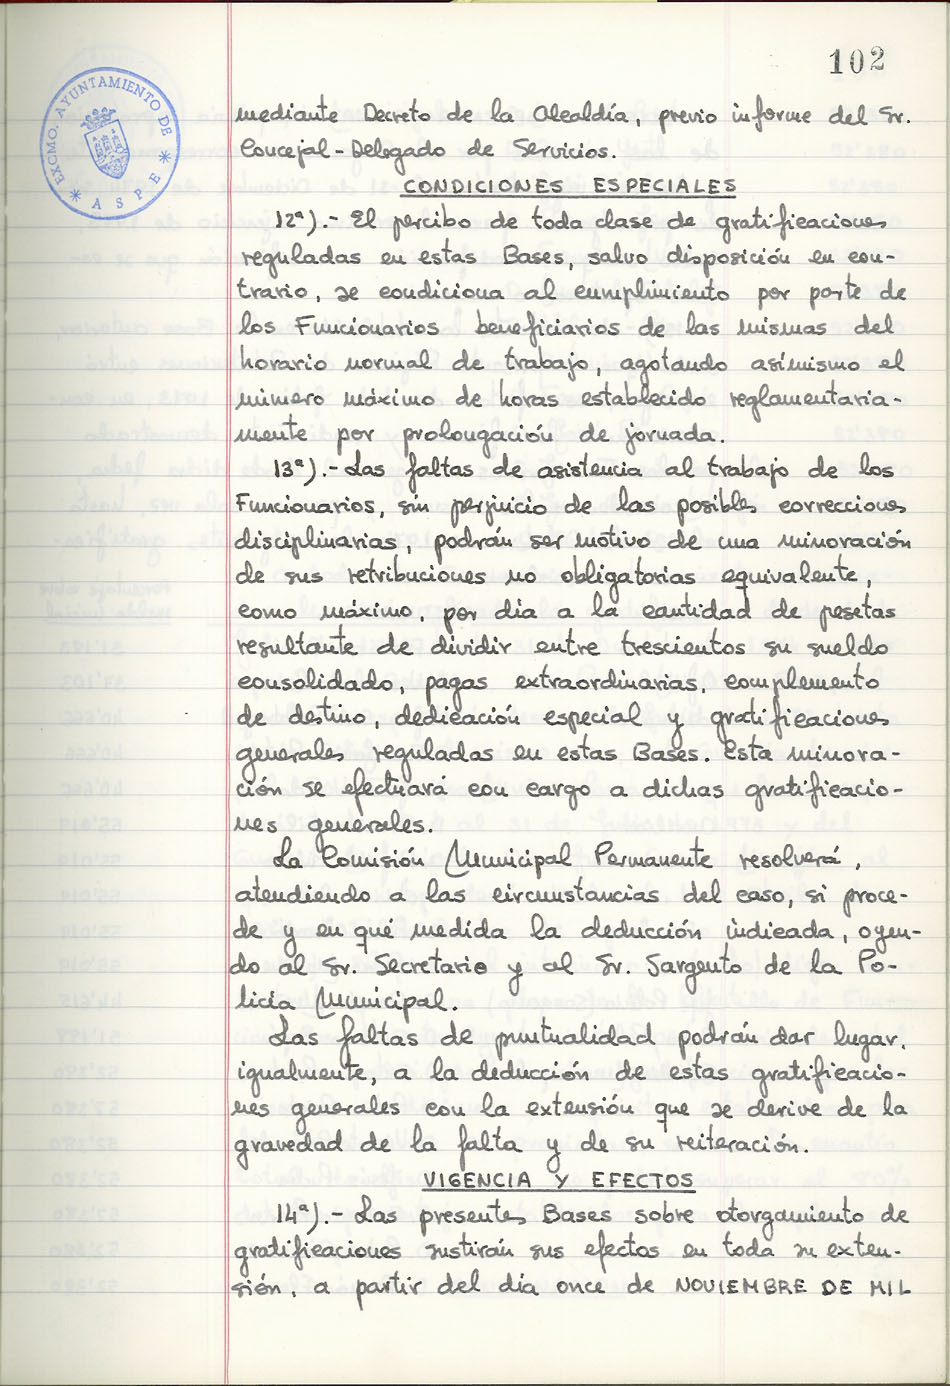 102
EXCMO. AYUNTAMIENTO DE
* ASPE *
mediante Decreto de la Alcaldía, previo informe del Sr.
Concejal-Delegado de Servicios.
CONDICIONES ESPECIALES
12ª).- El percibo de toda clase de gratificaciones
reguladas en estas Bases, salvo disposición en con-
trario, se condiciona al cumplimiento por parte de
los Funcionarios beneficiarios de las mismas del
horario normal de trabajo, agotando asímismo el
número máximo de horas establecido reglamentaria-
mente por prolongación de jornada.
13ª).- Las faltas de asistencia al trabajo de los
Funcionarios, sin perjuicio de las posibles correcciones
disciplinarias, podrán ser motivo de una minoración
de sus retribuciones no obligatorias equivalente,
como máximo, por día a la cantidad de pesetas
resultante de dividir entre trescientos su sueldo
consolidado, pagas extraordinarias, complemento
de destino, dedicación especial y gratificaciones
generales reguladas en estas Bases. Esta minora-
ción se efectuará con cargo a dichas gratificacio-
nes generales.
La Comisión Municipal Permanente resolverá,
atendiendo a las circunstancias del caso, si proce-
de y en qué medida la deducción indicada, oyen-
do al Sr. Secretario y al Sr. Sargento de la Po-
licía Municipal.
Las faltas de puntualidad podrán dar lugar,
igualmente, a la deducción de estas gratificacio-
nes generales con la extensión que se derive de la
gravedad de la falta y de su reiteración.
VIGENCIA Y EFECTOS
14ª).- Las presentes Bases sobre otorgamiento de
gratificaciones sustirán sus efectos en toda su exten-
sión, a partir del día once de NOVIEMBRE DE MIL